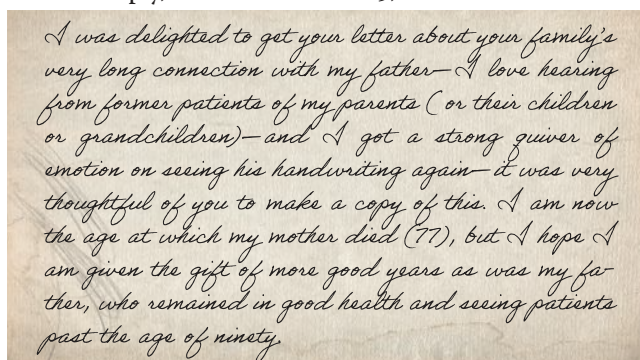 I was delighted to get your letter about your family's
very long connection with my father—I love hearing
from former patients of my parents (or their children
or grandchildren)—and I got a strong quiver of
emotion on seeing his handwriting again—it was very
thoughtful of you to make a copy of this. I am now
the age at which my mother died (77), but I hope I
am given the gift of more good years as was my fa-
ther, who remained in good health and seeing patients
past the age of ninety.